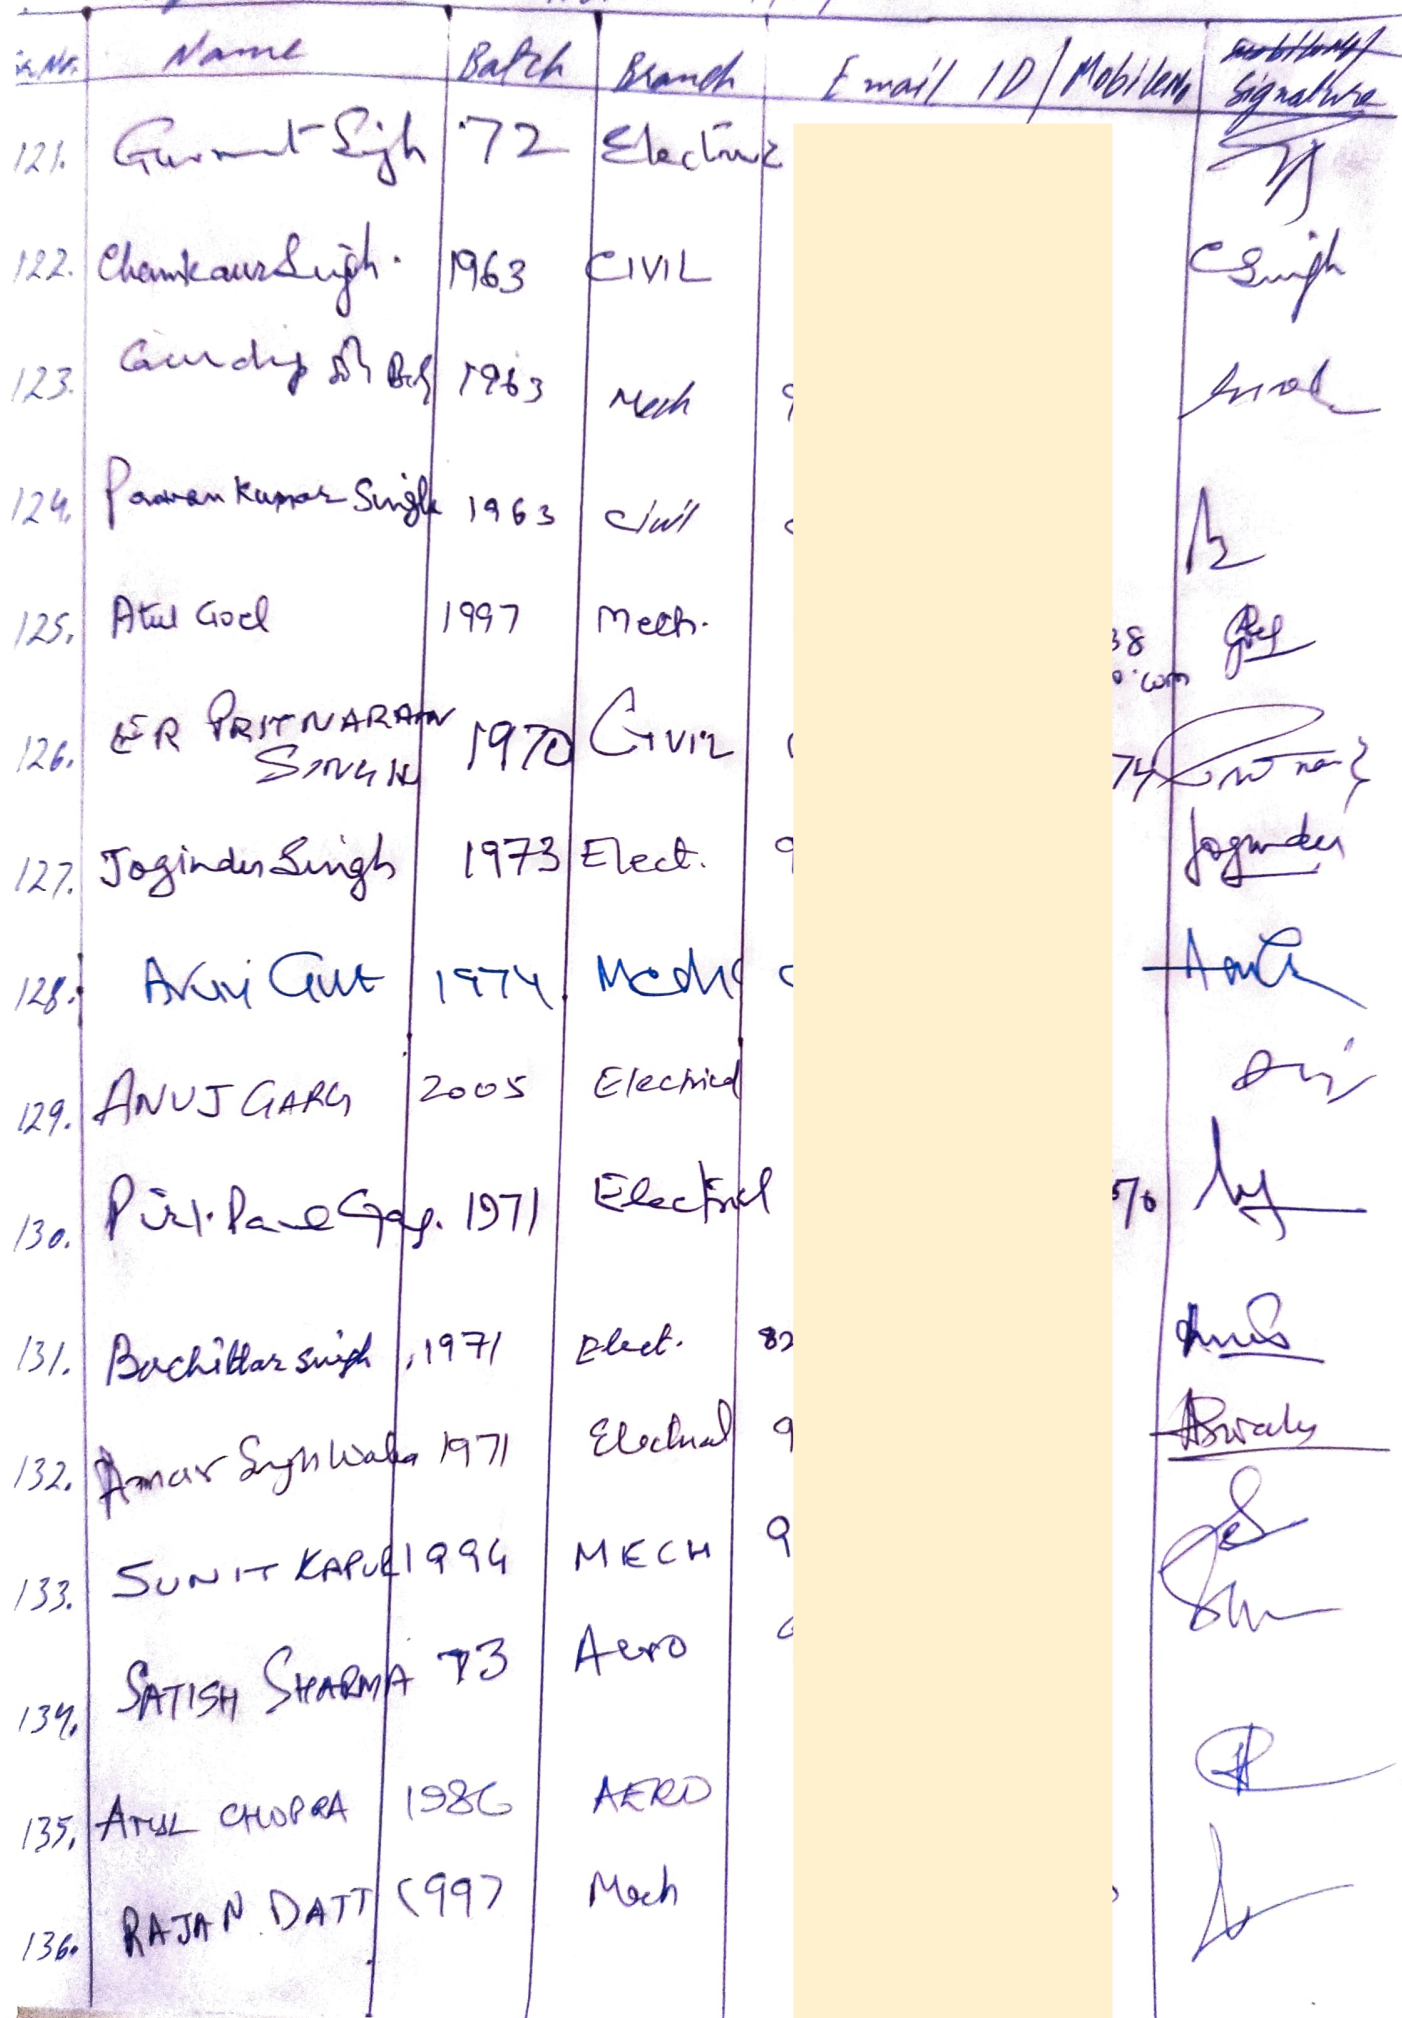 Sr. No. Name Batch Branch Email ID / Mobile No Signature
121. Gurmit Singh '72 Electric
122. Chamkaur Singh. 1963 CIVIL CSingh
123. Gurdip 1963 Mech
124. Pawan Kumar Singh 1963 Civil
125. Atul Goel 1997 Mech. 38
.com
126. ER PRITNARAIN 1970 CIVIL 74
SINGH
127. Joginder Singh 1973 Elect. 9 Joginder
128. 1974 Mech
129. ANUJ GARG 2005 Electrical
130. 1971 Electrical 70
131. Bachittar Singh 1971 Elect. 82
132. Amar Singh Walia 1971 Electrical 9
133. SUNIT KAPUR 1994 MECH 9
134. SATISH SHARMA 73 Aero
135. ATUL CHOPRA 1986 AERO
136. RAJAN DATT 1997 Mech